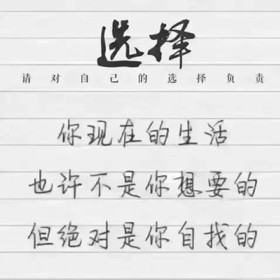 选择
请对自己的选择负责
你现在的生活
也许不是你想要的
但绝对是你自找的